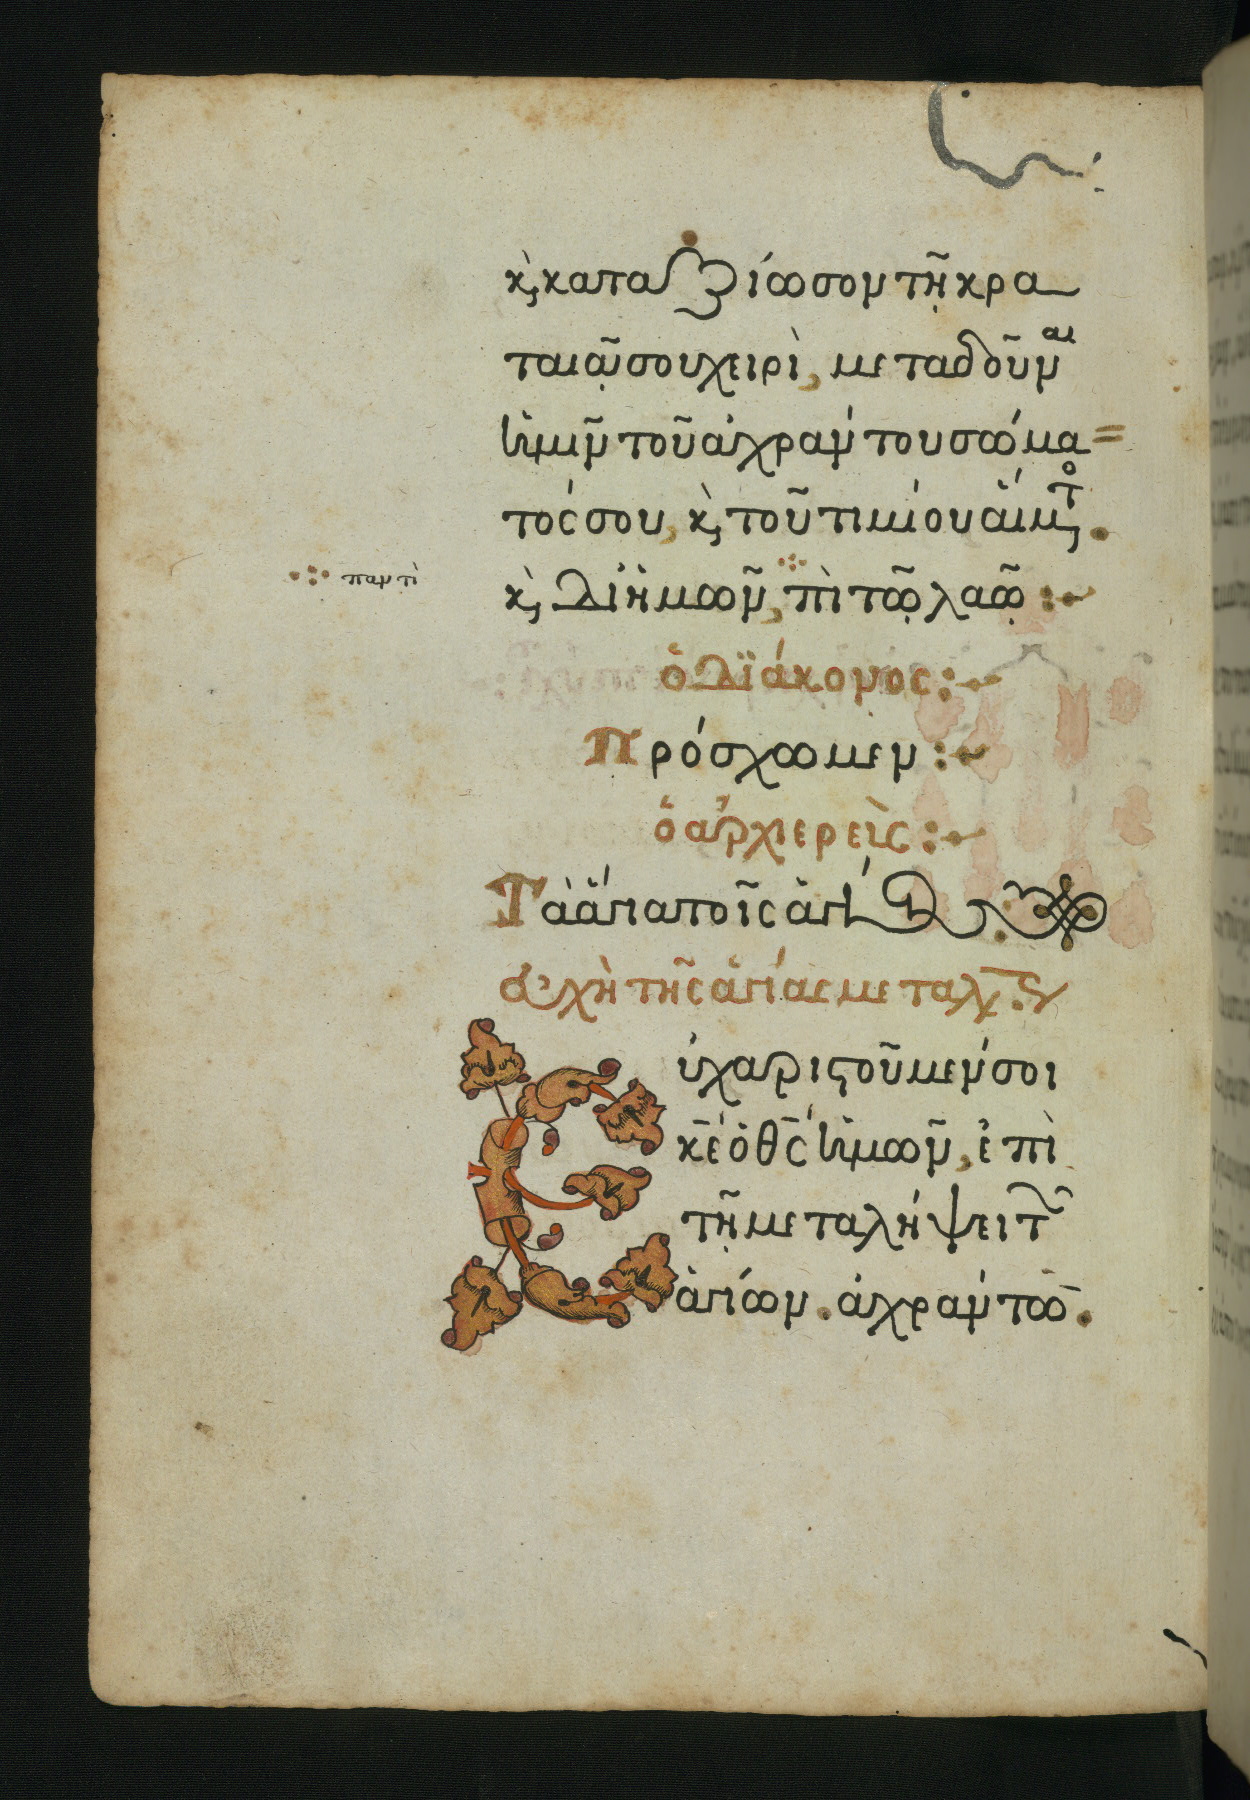 κ̀, καταξίωσον τῆ κρα
ταιᾷ σου χειρὶ, μεταδοῦν^αι
ἡμῖν τοῦ ἀχράντου σώμα=
τός σου, κ̀, τοῦ τιμίου αἵμ^ατο,.
παντὶ
κ̀, δι ἡμῶν, πὶ τῷ λαῷ :
ὁ Διάκονος :
Πρόσχωμεν :
ὁ ἀρχιερεὶς :
Τὰ ἅγια τοῖς ἁγί
εὐχὴ τῆς ἁγίας μεταλ
Εὐχαριστοῦμέν σοι
κ̄ε ὁ θ̄ς ἡμῶν, ἐπὶ
τῇ μεταλήψει τ῀
ἁγίων. ἀχράντω̄.